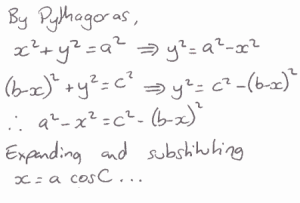 By Pythagoras,
x² + y² = a² ⇒ y² = a² - x²
(b-x)² + y² = c² ⇒ y² = c² - (b-x)²
∴ a² - x² = c² - (b-x)²
Expanding and substituting
x = a cos C ...